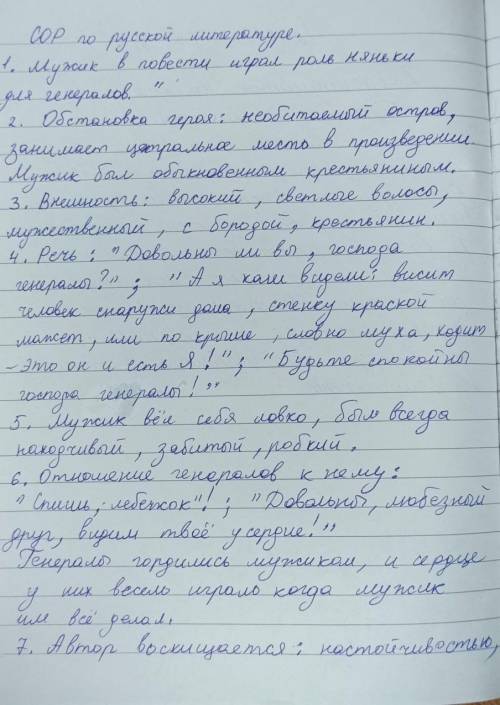 СОР по русской литературе.
1. Мужик в повести играл роль няньки
для генералов. "
2. Обстановка героя: необитаемый остров,
занимает центральное место в произведении.
Мужик был обыкновенным крестьянином.
3. Внешность: высокий, светлые волосы,
мужественный, с бородой, крестьянин.
4. Речь: "Довольны ли вы, господа
генералы?"; "А я коли видели: висит
человек снаружи дома, стенку краской
мажет, или по крыше, словно муха, ходит
- Это он и есть Я!"; "Будьте спокойны
господа генералы!""
5. Мужик вёл себя ловко, был всегда
находчивый, забитый, робкий.
6. Отношение генералов к нему:
"Спишь, лежебок"!; "Довольны, любезный
друг, видим твоё усердие!"
Генералы гордились мужиком, и сердце
у них весело играло когда мужик
им всё делал.
7. Автор восхищается: настойчивостью,